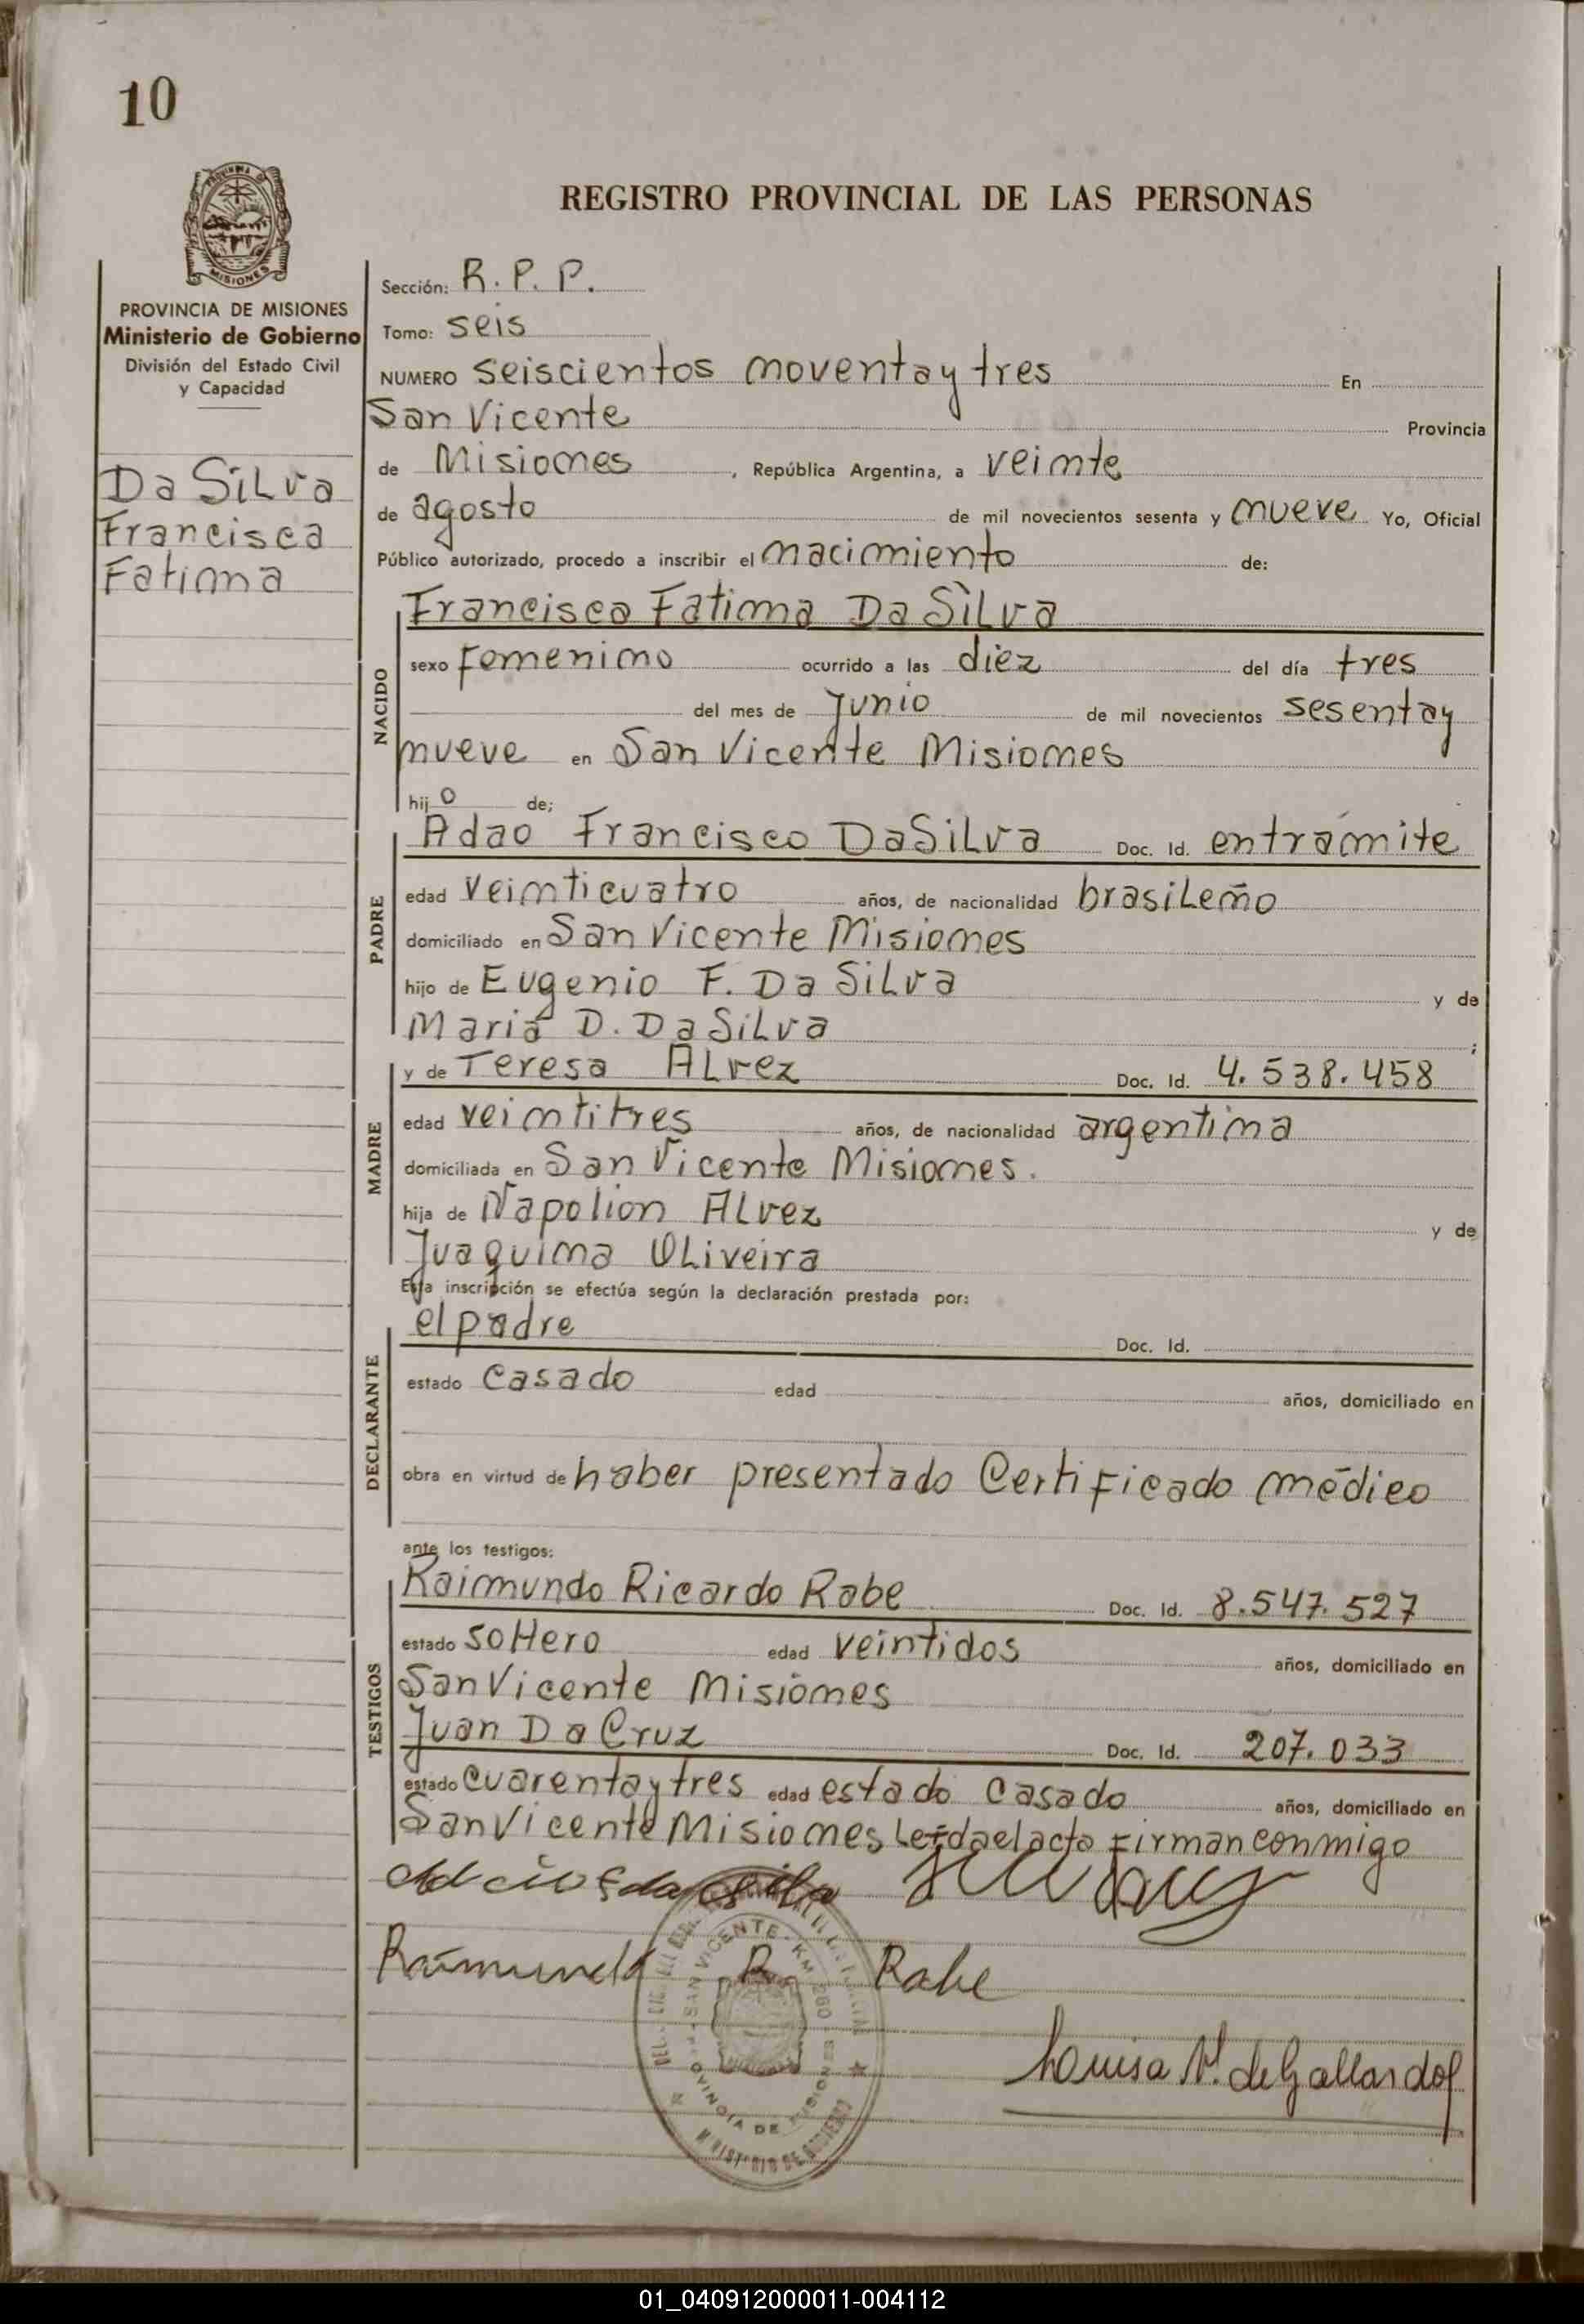 10
PROVINCIA DE MISIONES
Ministerio de Gobierno
División del Estado Civil
y Capacidad
Da Silva
Francisca
Fatima
REGISTRO PROVINCIAL DE LAS PERSONAS
Sección: R. P. P.
Tomo: seis
NUMERO seiscientos noventa y tres En
San Vicente Provincia
de Misiones, República Argentina, a veinte
de agosto de mil novecientos sesenta y nueve Yo, Oficial
Público autorizado, procedo a inscribir el nacimiento de:
NACIDO
Francisca Fatima Da Silva
sexo femenino ocurrido a las diez del día tres
del mes de Junio de mil novecientos sesenta y
nueve en San Vicente Misiones
hijo de;
PADRE
Adao Francisco Da Silva Doc. Id. entramite
edad veinticuatro años, de nacionalidad brasileño
domiciliado en San Vicente Misiones
hijo de Eugenio F. Da Silva y de
Maria D. Da Silva ;
MADRE
y de Teresa Alvez Doc. Id. 4.538.458
edad veintitres años, de nacionalidad argentina
domiciliada en San Vicente Misiones.
hija de Napolion Alvez y de
Juaquina Oliveira
Esta inscripción se efectúa según la declaración prestada por:
DECLARANTE
el padre Doc. Id.
estado Casado edad años, domiciliado en
obra en virtud de haber presentado Certificado médico
ante los testigos:
TESTIGOS
Raimundo Ricardo Rabe Doc. Id. 8.547.527
estado soltero edad veintidos años, domiciliado en
San Vicente Misiones
Juan Da Cruz Doc. Id. 207.033
estado cuarenta y tres edad estado Casado años, domiciliado en
San Vicente Misiones Leida el acta firman conmigo
Raimundo R. Rabe
SAN VICENTE - KM 280
MINISTERIO DE GOBIERNO
Louisa N. de Gallardo
01_040912000011-004112